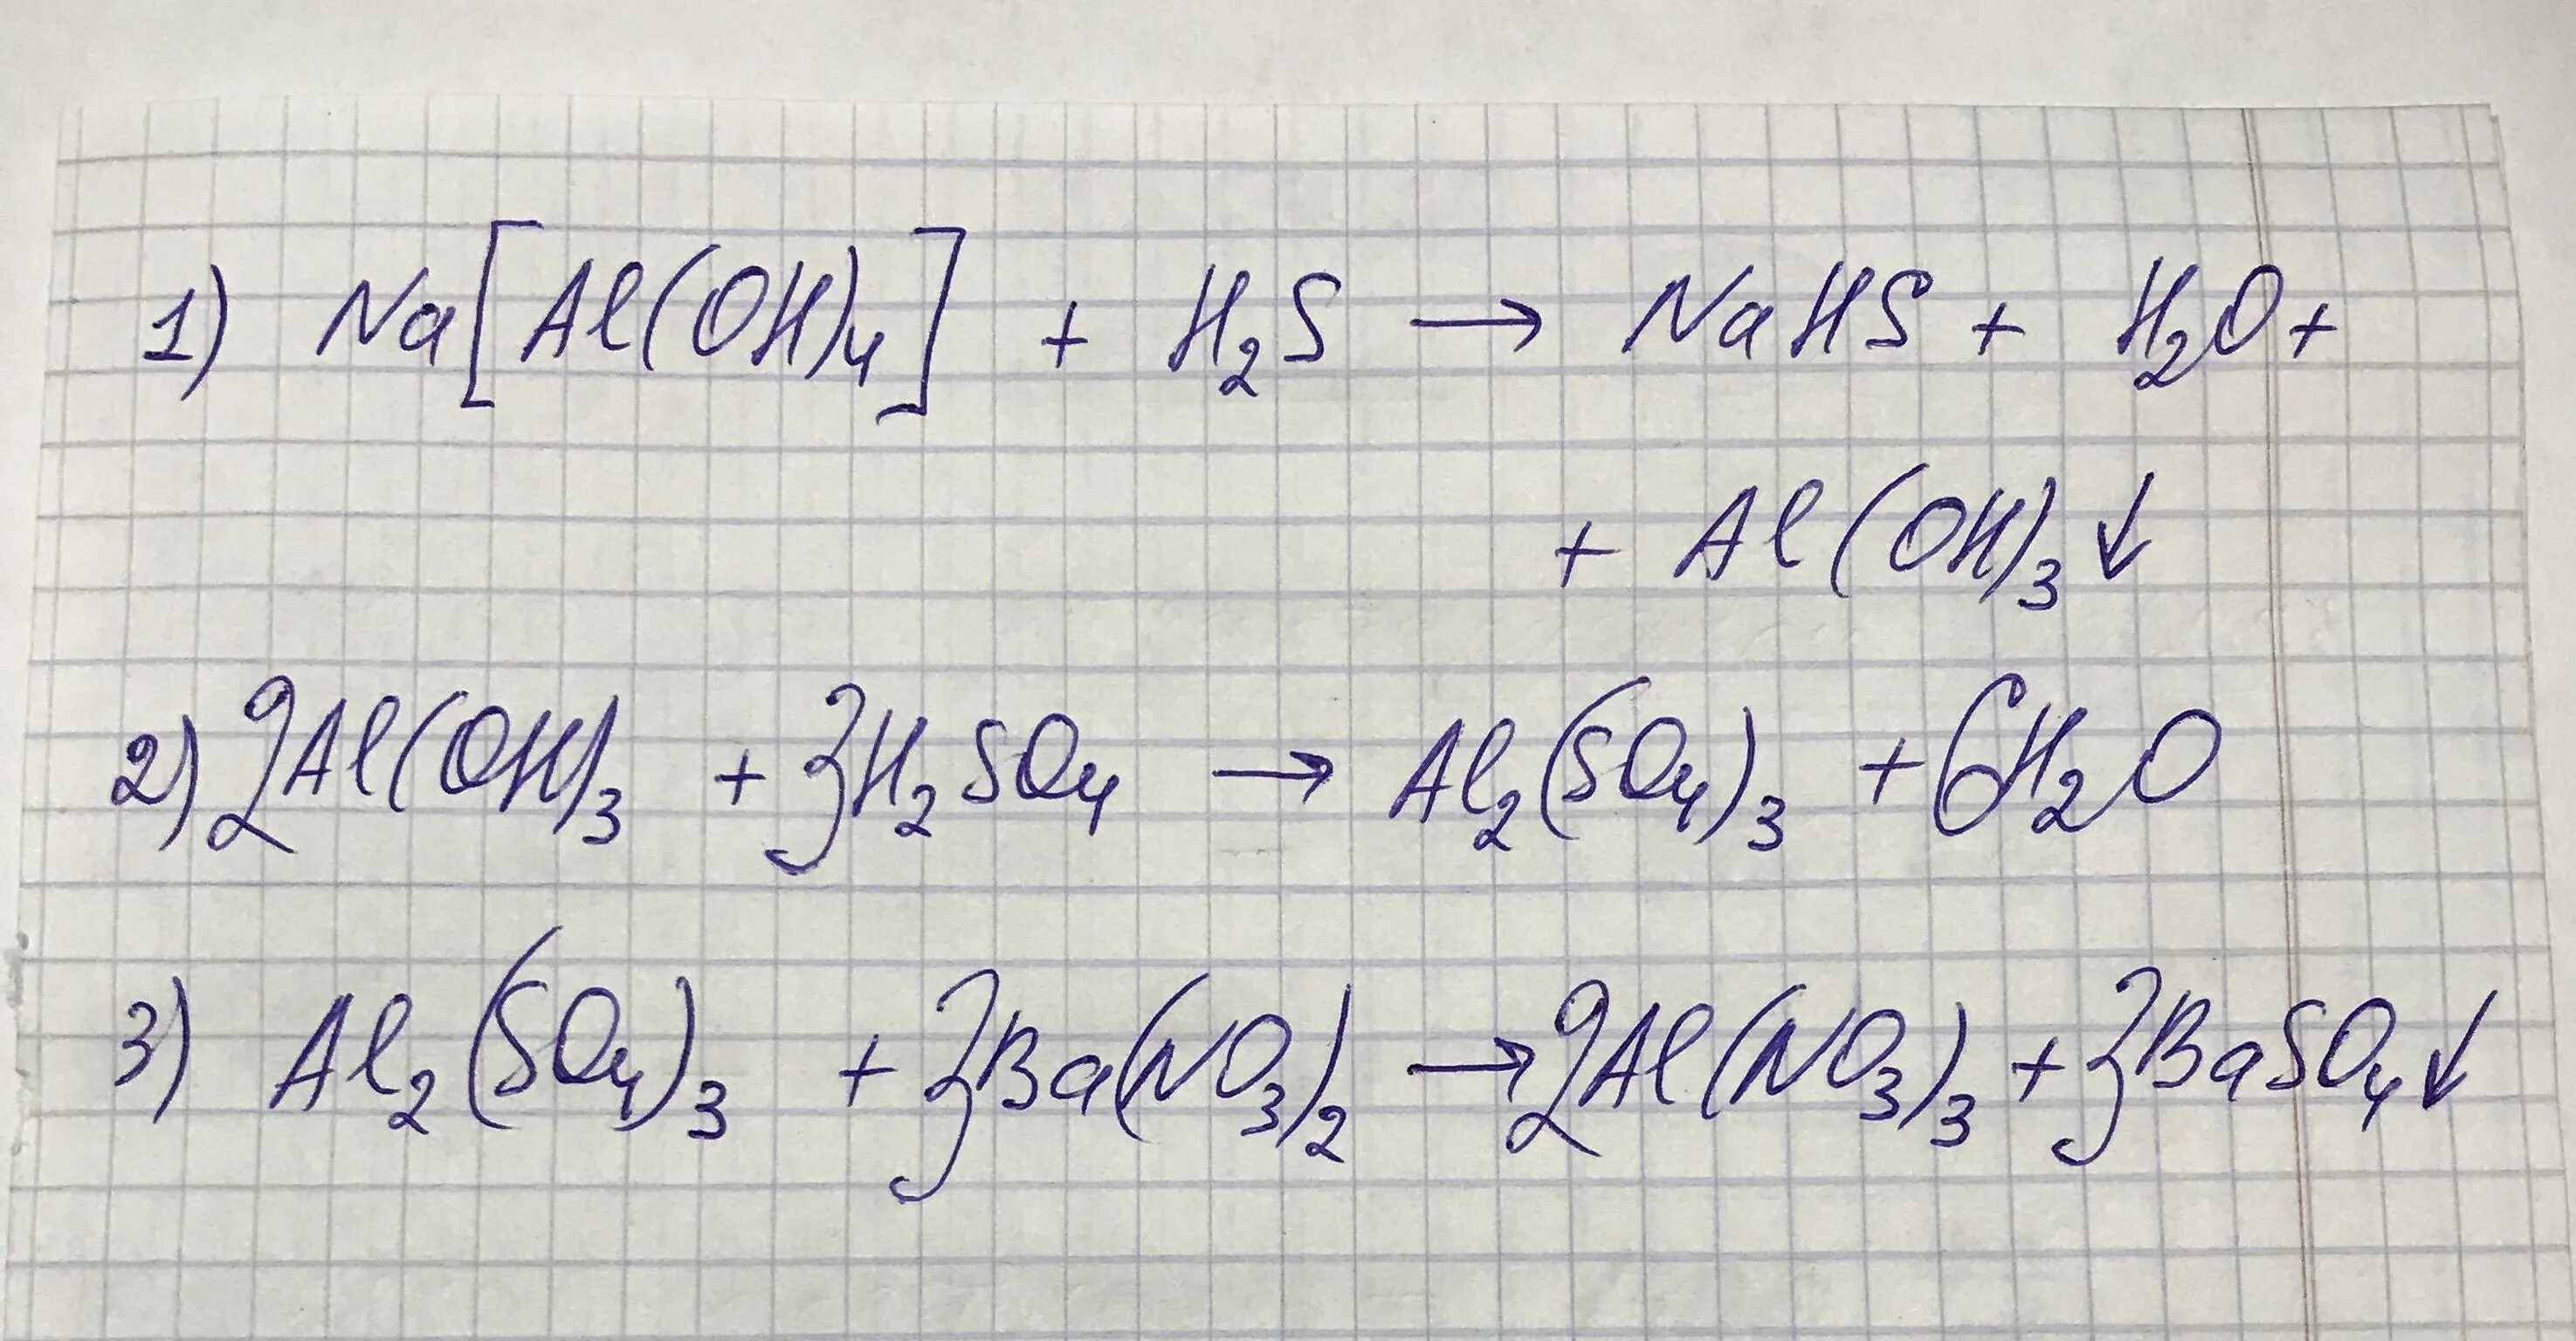 1) Na[Al(OH)₄] + H₂S → NaHS + H₂O +
+ Al(OH)₃↓
2) 2Al(OH)₃ + 3H₂SO₄ → Al₂(SO₄)₃ + 6H₂O
3) Al₂(SO₄)₃ + 3Ba(NO₃)₂ → 2Al(NO₃)₃ + 3BaSO₄↓